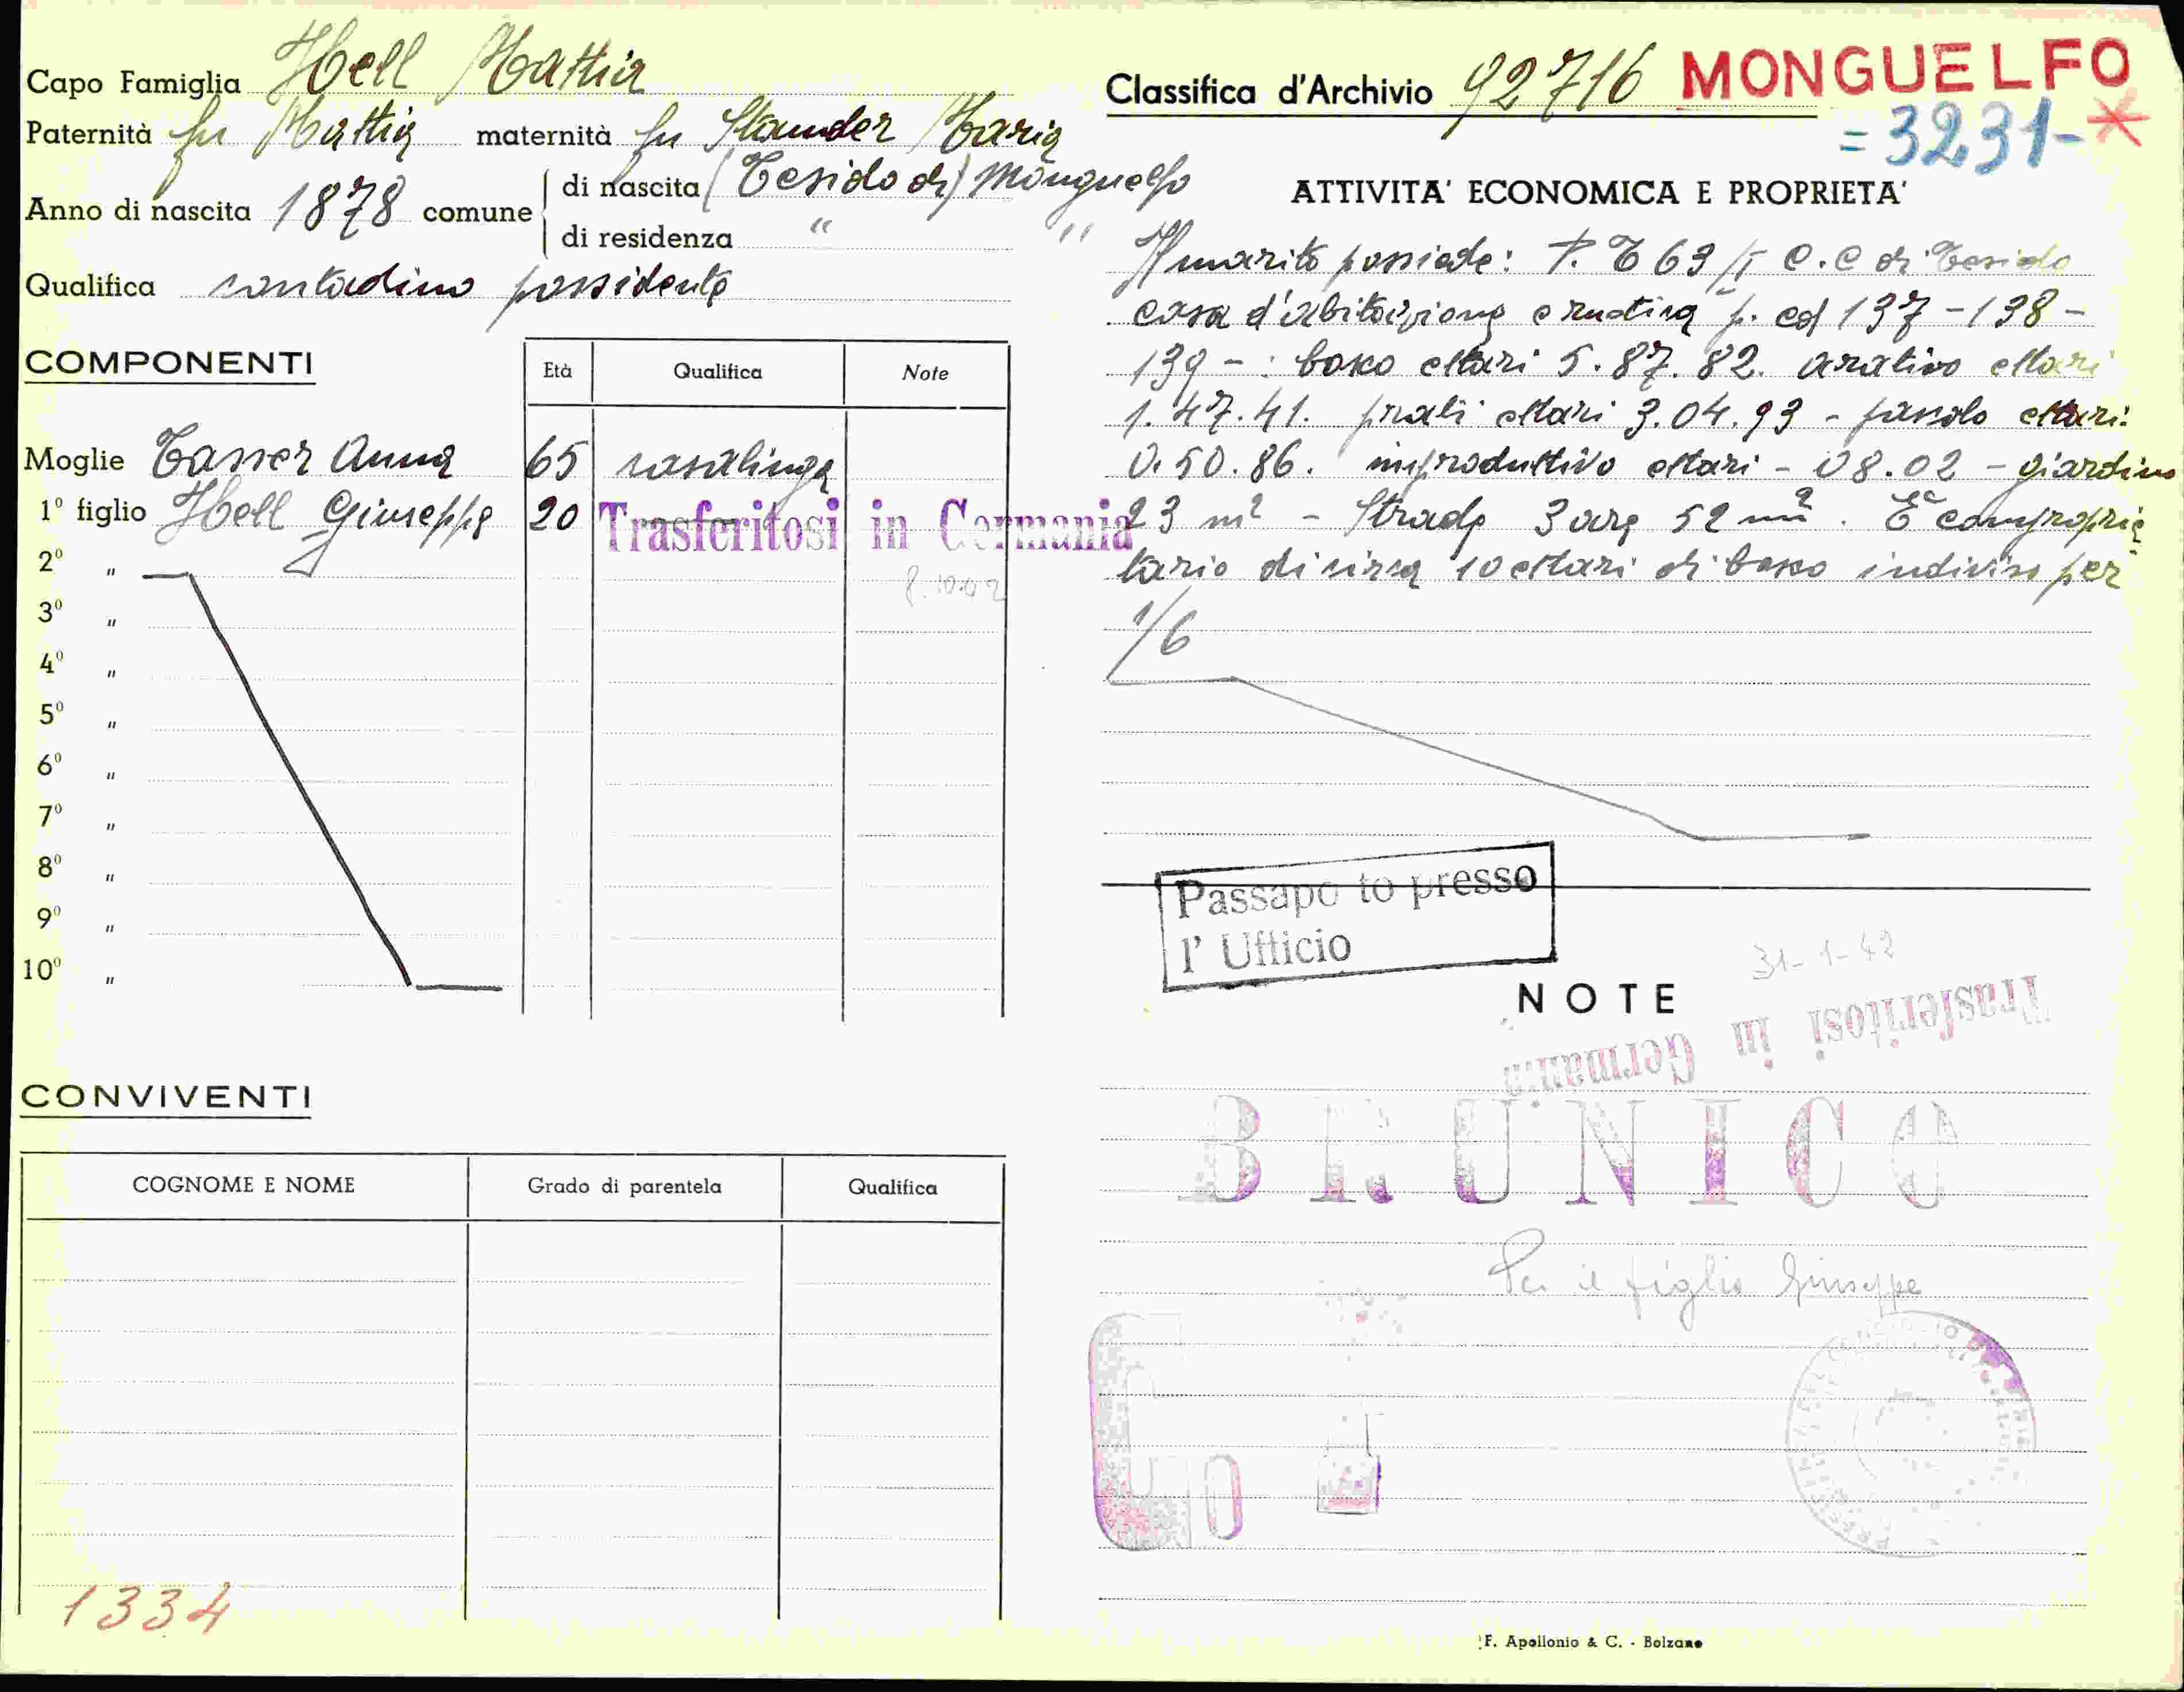 Capo Famiglia Hell Mattia
Paternità fu Mattia maternità fu Stauder Maria
Anno di nascita 1878 comune di nascita (Tesido di) Monguelfo
di residenza " "
Qualifica contadino possidente
COMPONENTI
Età Qualifica Note
Moglie Tasser Anna 65 casalinga
1º figlio Hell Giuseppe 20 Trasferitosi in Germania
8.10.42
2º "
3º "
4º "
5º "
6º "
7º "
8º "
9º "
10º "
CONVIVENTI
COGNOME E NOME Grado di parentela Qualifica
1334
Classifica d'Archivio 92716 MONGUELFO
= 3231-*
ATTIVITA' ECONOMICA E PROPRIETA'
Il marito possiede: P. T 63/I C.C di Tesido
casa d'abitazione e rustica p. ed 137 - 138 -
139 - : bosco ettari 5.87.82. arativo ettari
1.47.41. prati ettari 3.04.93 - pascolo ettari:
0.50.86. improduttivo ettari - 08.02 - giardino
23 m² - Strade 3 are 52 m². È comproprie
tario di circa 10 ettari di bosco indiviso per
1/6
Passapo to presso
l' Ufficio
31-1-42
NOTE
Trasferitosi in Germania
BRUNICO
Per il figlio Giuseppe
F. Apollonio & C. - Bolzano